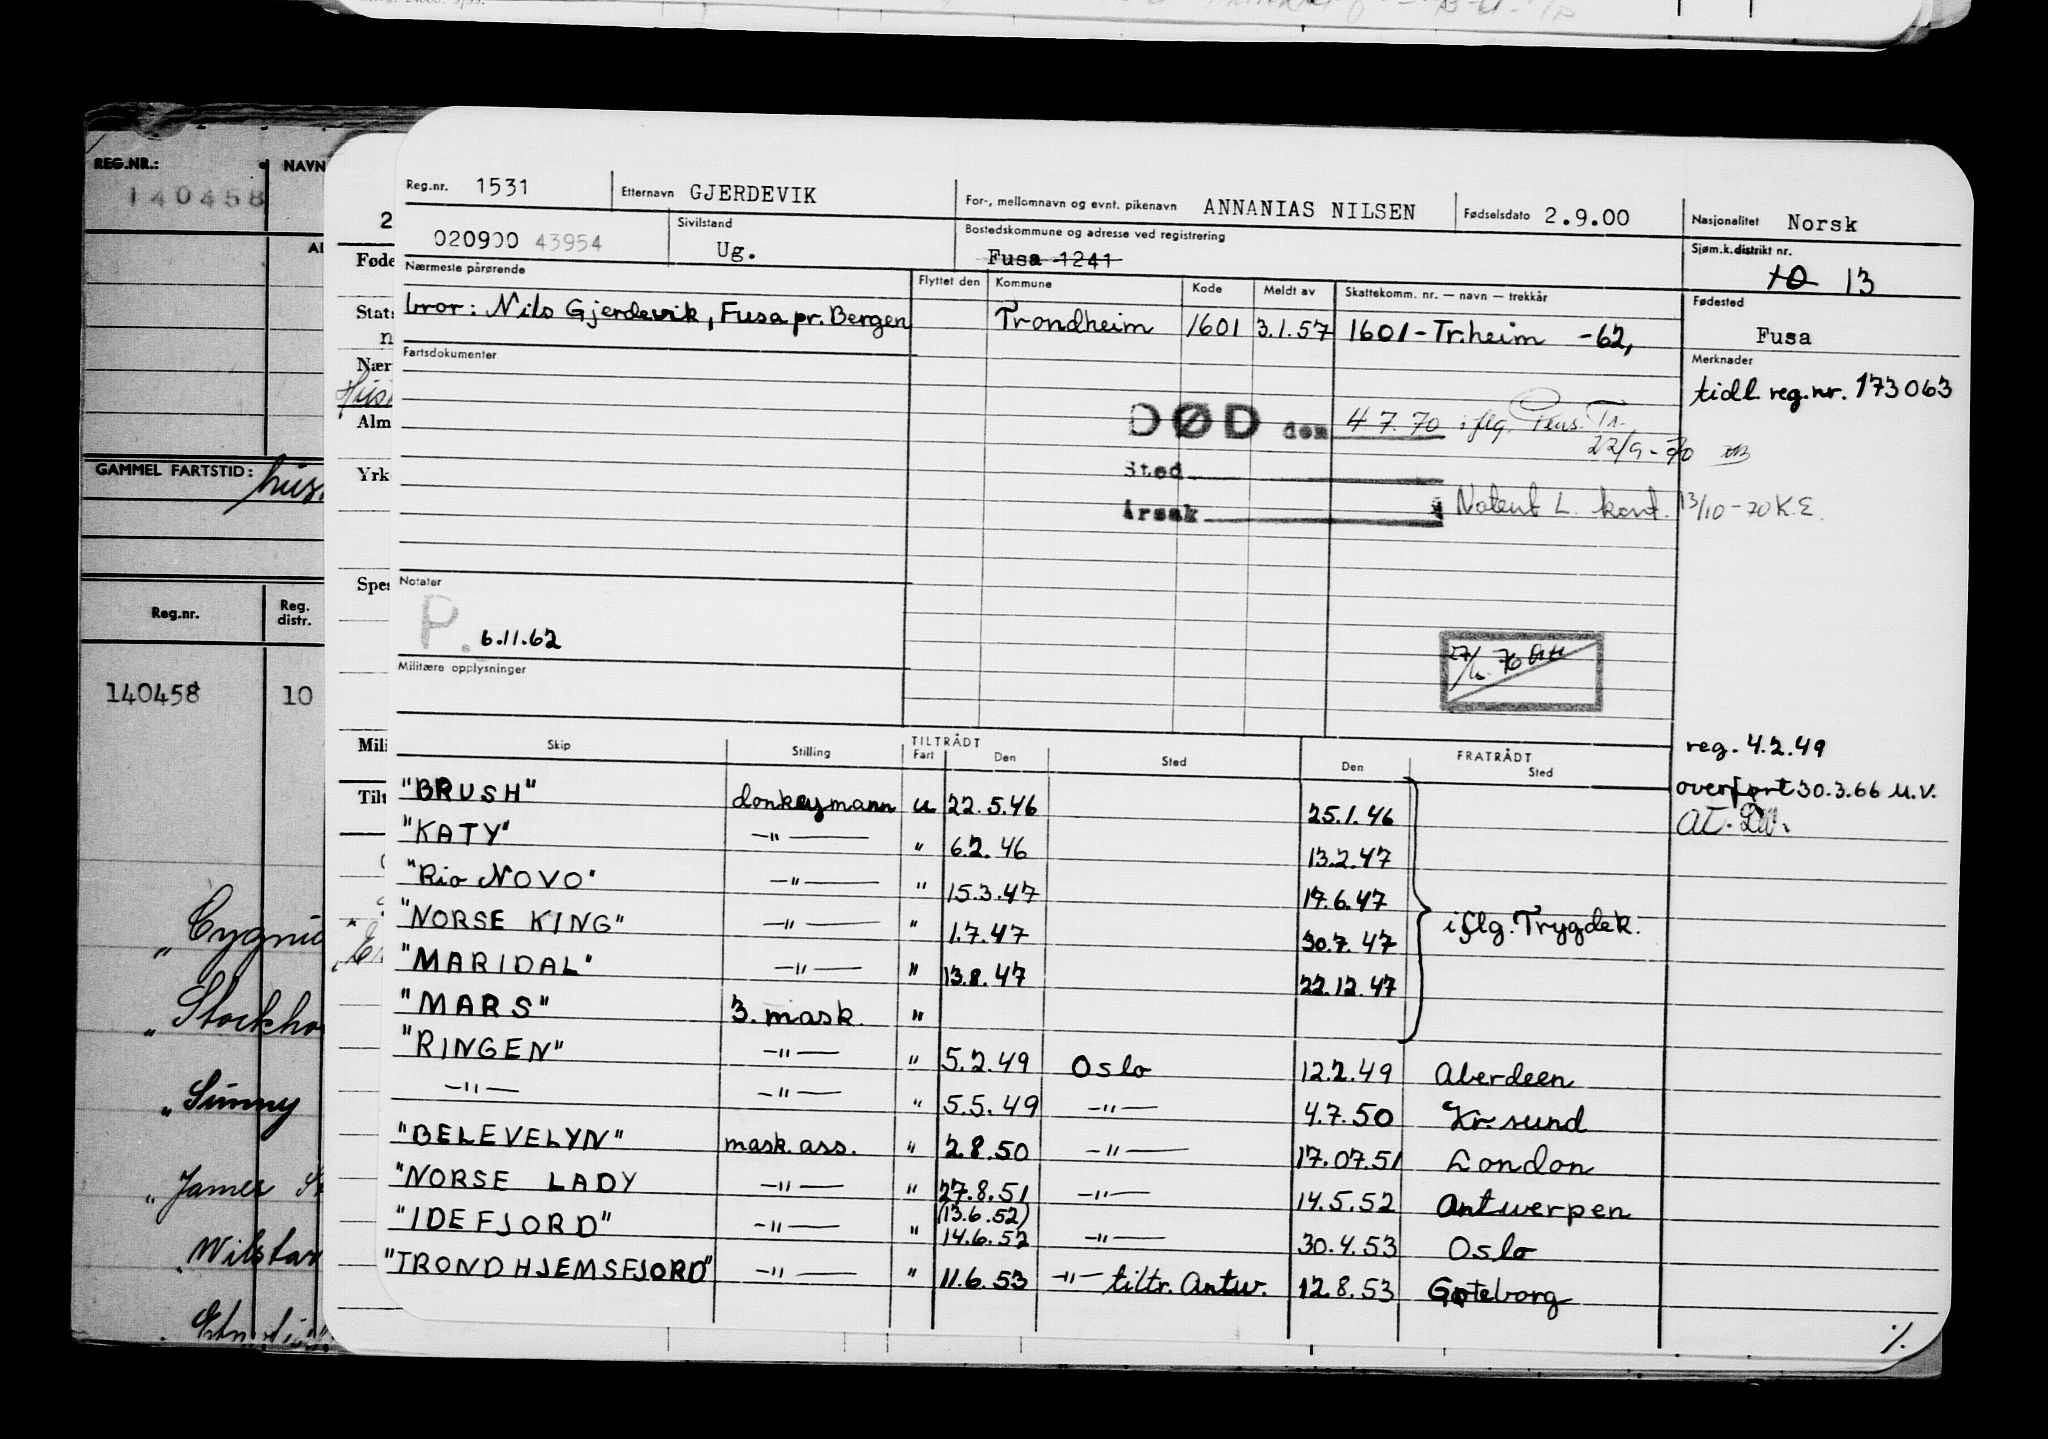 REG.NR.: NAVN
140458
GAMMEL FARTSTID:
Reg.nr. Reg. distr.
140458 10
„Sunny
Reg.nr. 1531 Etternavn GJERDEVIK For-, mellomnavn og evnt. pikenavn ANNANIAS NILSEN Fødselsdato 2.9.00 Nasjonalitet Norsk
020900 43954 Sivilstand Ug. Bostedskommune og adresse ved registrering Fusa 1241 Sjøm.k.distrikt nr. 10 13
Nærmeste pårørende Flyttet den Kommune Kode Meldt av Skattekomm. nr. — navn — trekkår Fødested
bror: Nils Gjerdevik, Fusa pr. Bergen Trondheim 1601 3.1.57 1601-Tr.heim -62, Fusa
Fartsdokumenter Merknader
tidl. reg.nr. 173063
DØD den 4 7. 70 iflg. Pens. Tr.
22/9-70
Sted
Årsak Notert L. kort. 13/10-70 K.E.
Notater
P. 6.11.62
Militære opplysninger
Skip Stilling TILTRÅDT Fart Den Sted Den FRATRÅDT Sted
reg. 4.2.49
overført 30.3.66 M.V.
"BRUSH" donkeymann u 22.5.46 25.1.46
"KATY" —"— " 6.2.46 13.2.47
"Rio NOVO" —"— " 15.3.47 17.6.47
"NORSE KING" —"— " 1.7.47 30.7.47 iflg. Trygdek.
"MARIDAL" —"— " 13.8.47 22.12.47
"MARS" 3. mask. "
"RINGEN" —"— " 5.2.49 Oslo 12.2.49 Aberdeen
—"— —"— " 5.5.49 —"— 4.7.50 Kr.sund
"BELEVELYN" mask.ass. " 2.8.50 —"— 17.07.51 London
"NORSE LADY —"— " 27.8.51 —"— 14.5.52 Antwerpen
(13.6.52)
"IDEFJORD" —"— " 14.6.52 —"— 30.4.53 Oslo
"TRONDHJEMSFJORD" —"— " 11.6.53 —"— tiltr. Antw. 12.8.53 Gøteborg